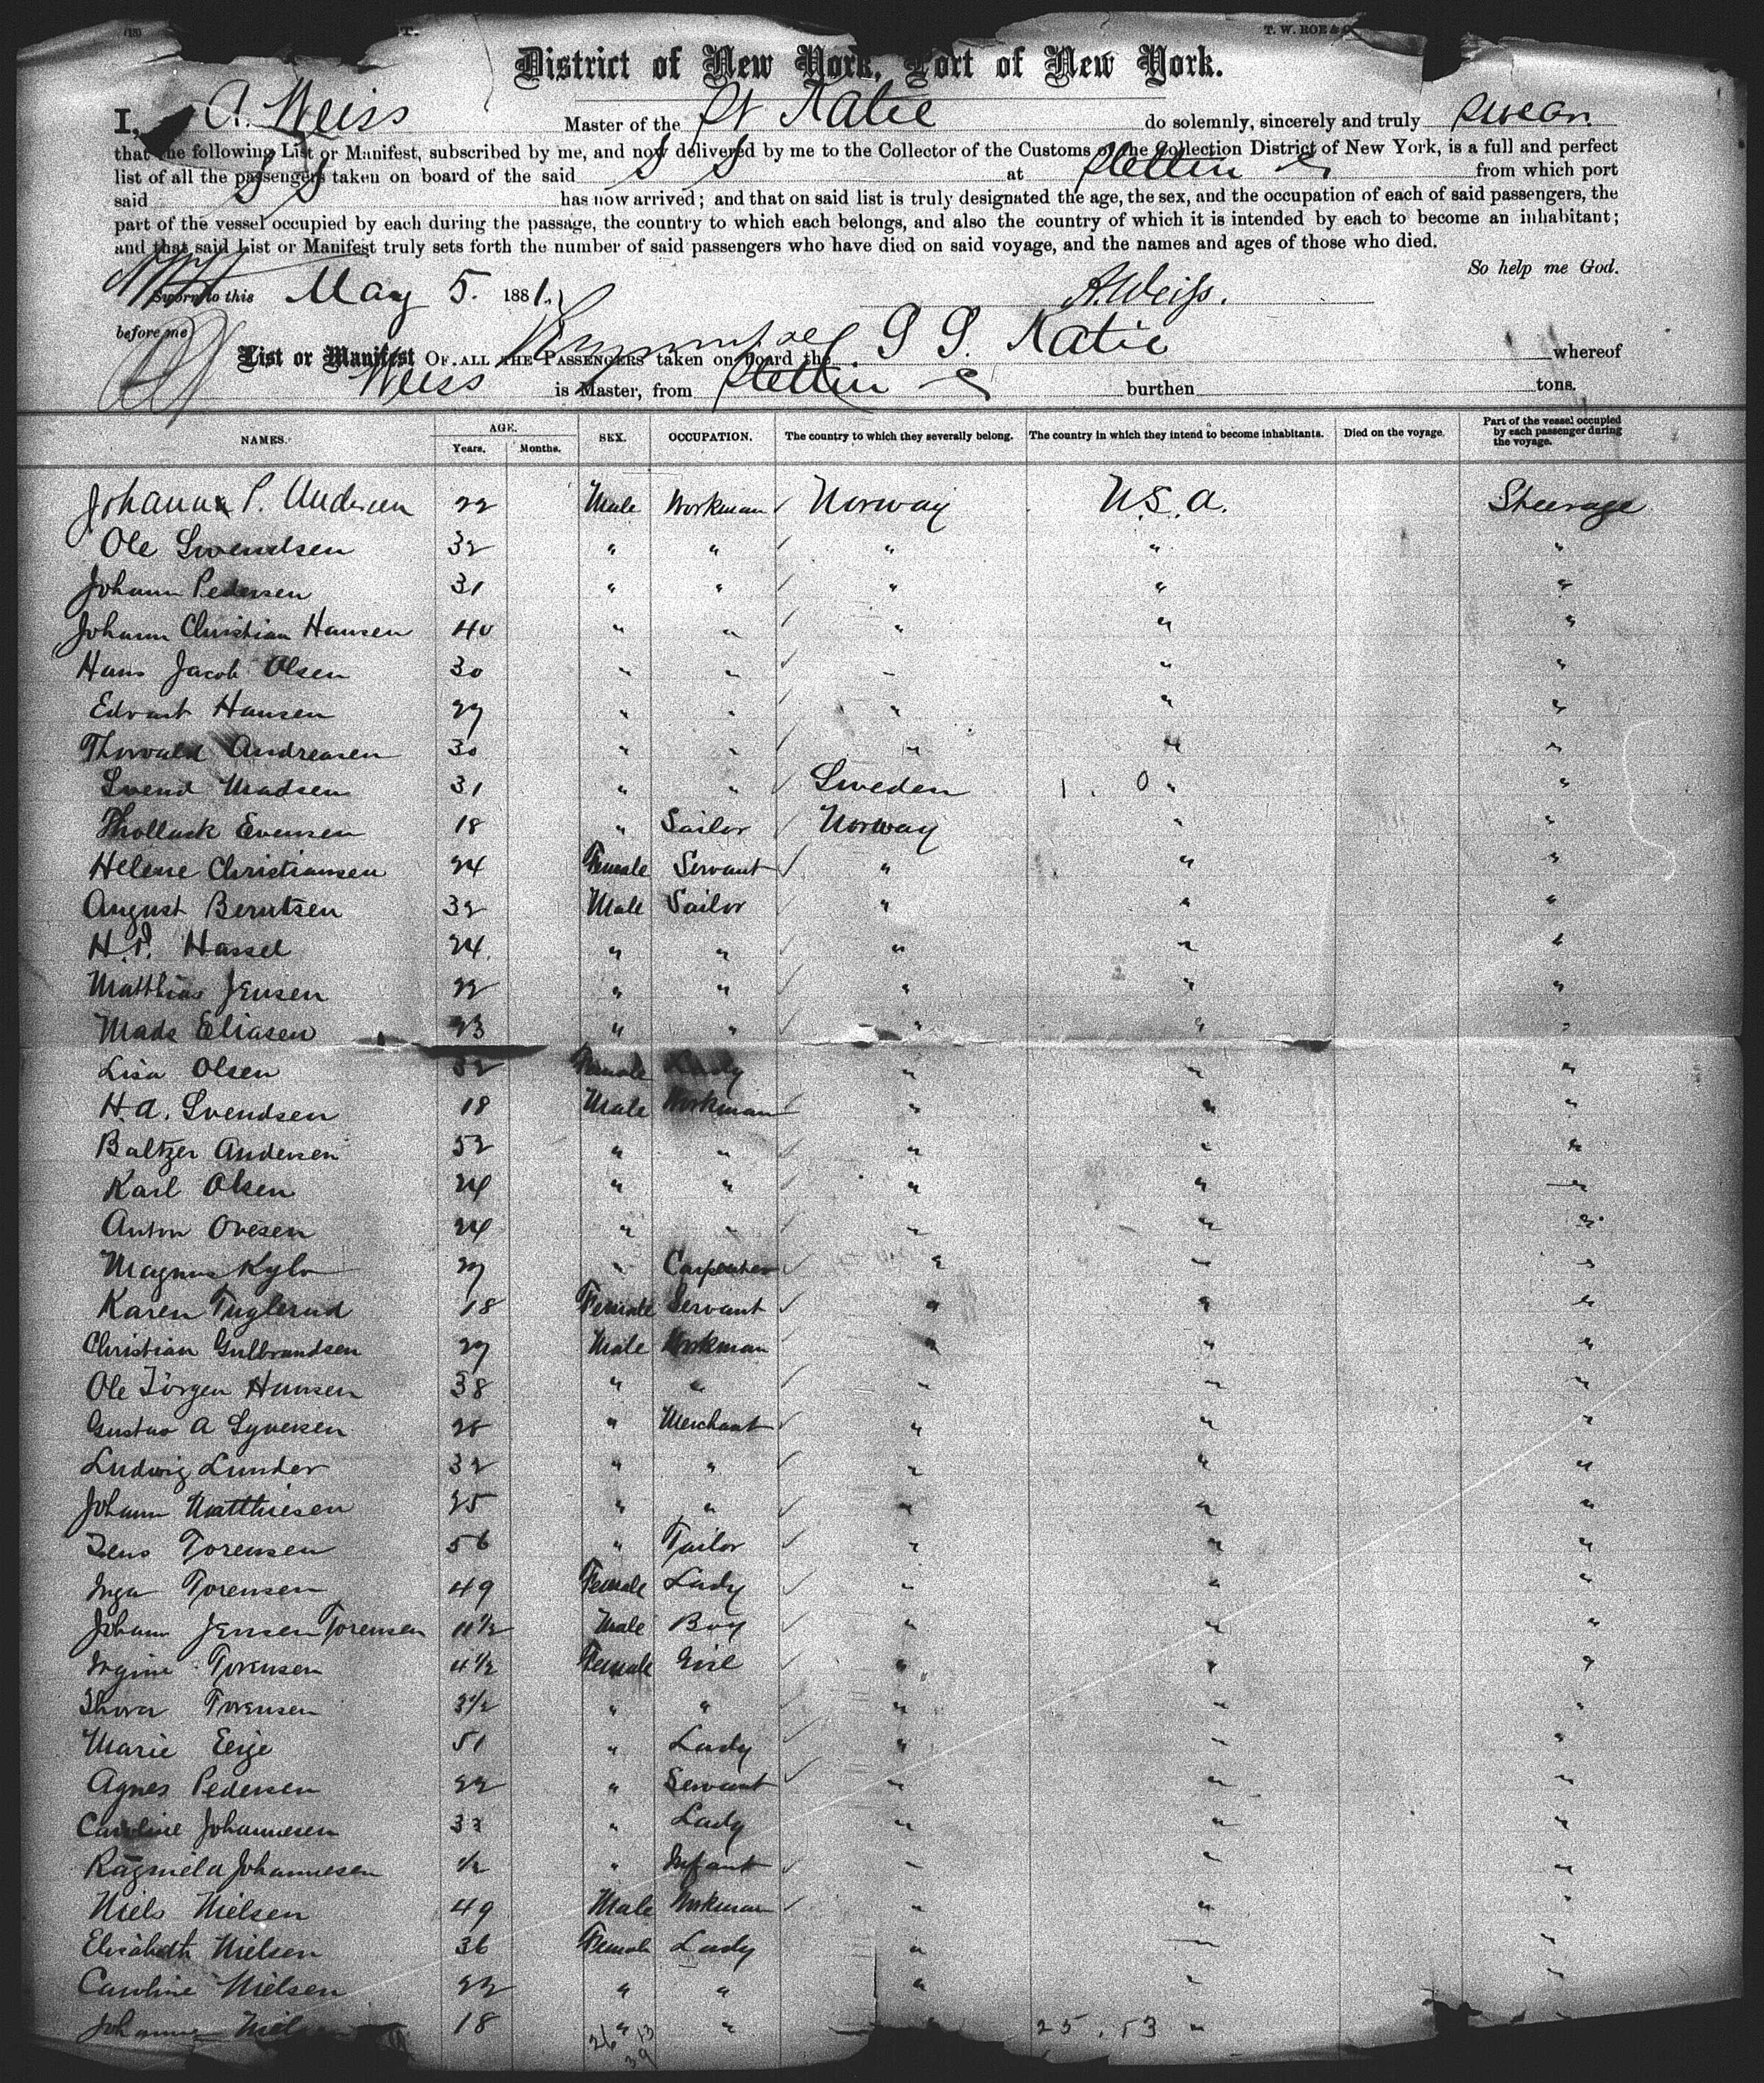 (13)
T. W. ROE & C
District of New York, Port of New York.
I, A. Weiss Master of the St Katie do solemnly, sincerely and truly swear
that the following List or Manifest, subscribed by me, and now delivered by me to the Collector of the Customs of the Collection District of New York, is a full and perfect
list of all the passengers taken on board of the said S S at Stettin from which port
said S S has now arrived; and that on said list is truly designated the age, the sex, and the occupation of each of said passengers, the
part of the vessel occupied by each during the passage, the country to which each belongs, and also the country of which it is intended by each to become an inhabitant;
and that said List or Manifest truly sets forth the number of said passengers who have died on said voyage, and the names and ages of those who died.
So help me God.
Sworn to this May 5. 1881. A. Weiss.
before me
List or Manifest OF ALL THE PASSENGERS taken on board the S S. Katie whereof
Weiss is Master, from Stettin burthen tons.
NAMES. AGE. Years. Months. SEX. OCCUPATION. The country to which they severally belong. The country in which they intend to become inhabitants. Died on the voyage. Part of the vessel occupied by each passenger during the voyage.
Johann P. Andersen 22 Male Workman Norway U.S.A. Steerage
Ole Swendsen 32 " " " " "
Johann Pedersen 31 " " " " "
Johann Christian Hansen 40 " " " " "
Hans Jacob Olsen 30 " " " " "
Edvart Hansen 27 " " " " "
Thorvald Andreasen 30 " " " " "
Svend Madsen 31 " " Sweden 1. 0 " "
Thollack Evensen 18 " Sailor Norway " "
Helene Christiansen 24 Female Servant " " "
August Berntsen 32 Male Sailor " " "
H.P. Hassel 24. " " " " "
Matthias Jensen 22 " " " " "
Mads Eliasen 23 " " " " "
Lisa Olsen 52 Female Lady " " "
H.A. Svendsen 18 Male Workman " " "
Baltzer Andersen 52 " " " " "
Karl Olsen 24 " " " " "
Anton Ovesen 24 " " " " "
Magnus Kylv 27 " Carpenter " " "
Karen Fuglerud 18 Female Servant " " "
Christian Gulbrandsen 27 Male Workman " " "
Ole Jörgen Hansen 38 " " " " "
Gustav A Syversen 28 " Merchant " " "
Ludwig Lunder 32 " " " " "
Johann Matthiesen 25 " " " " "
Jens Torensen 56 " Tailor " " "
Inga Torensen 49 Female Lady " " "
Johann Jensen Torensen 11½ Male Boy " " "
Ingine Torensen 4½ Female Girl " " "
Thora Torensen 3½ " " " " "
Marie Eeje 51 " Lady " " "
Agnes Pedersen 22 " Servant " " "
Caroline Johannesen 33 " Lady " " "
Ragnela Johannesen ½ " Infant " " "
Niels Nielsen 49 Male Workman " " "
Elisabeth Nielsen 36 Female Lady " " "
Caroline Nielsen 22 " " " " "
Johanne Nielsen 18 " " 25. 13 "
26 13
39